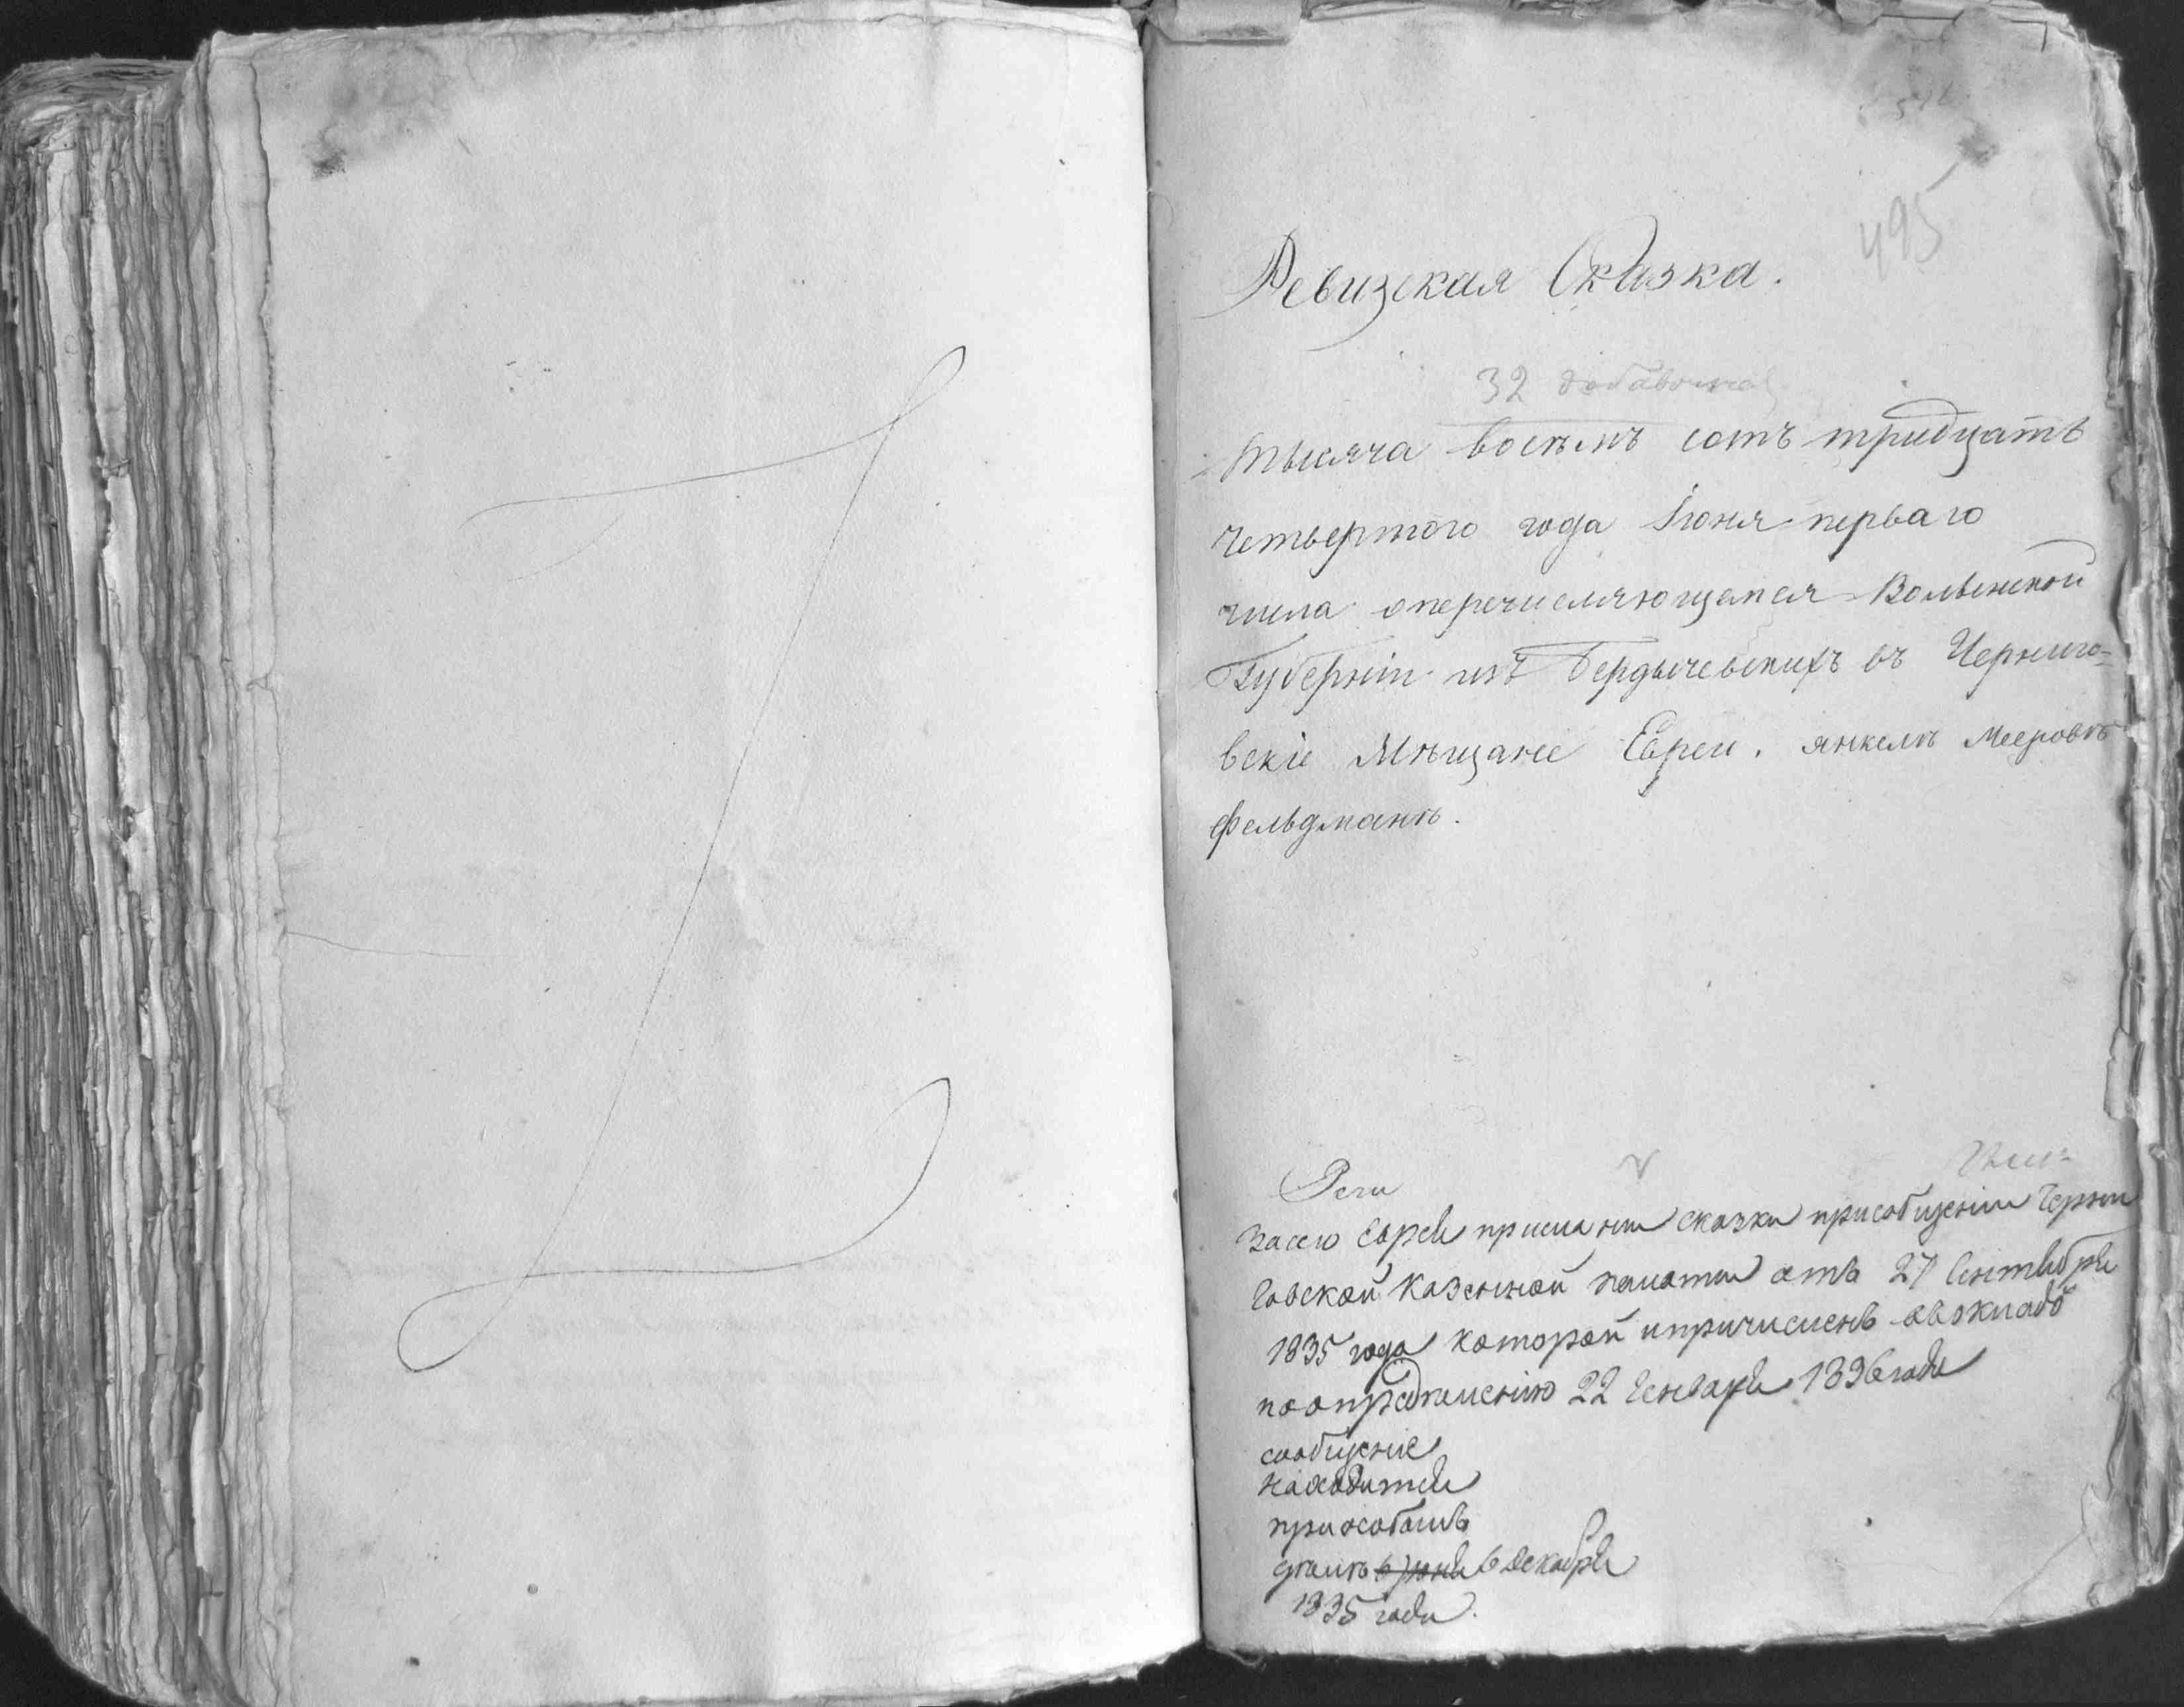 495
Ревизская Сказка.
32 добавочная
тысяча восемь сотъ тридцать
четвертого года Іюня перваго
числа о перечисляющемся Волынской
Губерніи изъ Бердычевскихъ въ Черниго=
вскіе Мѣщане Еврей. янкель Мееровъ
фельдманъ.
сказки присобщеніи Черни
говской Казенной палаты отъ 27 Сентября
1835 года которой и причисленъ въ окладъ
по определенію 22 Генваря 1836 года
сообщение
находится
при особомъ
делѣ 6 декабря
1835 года.